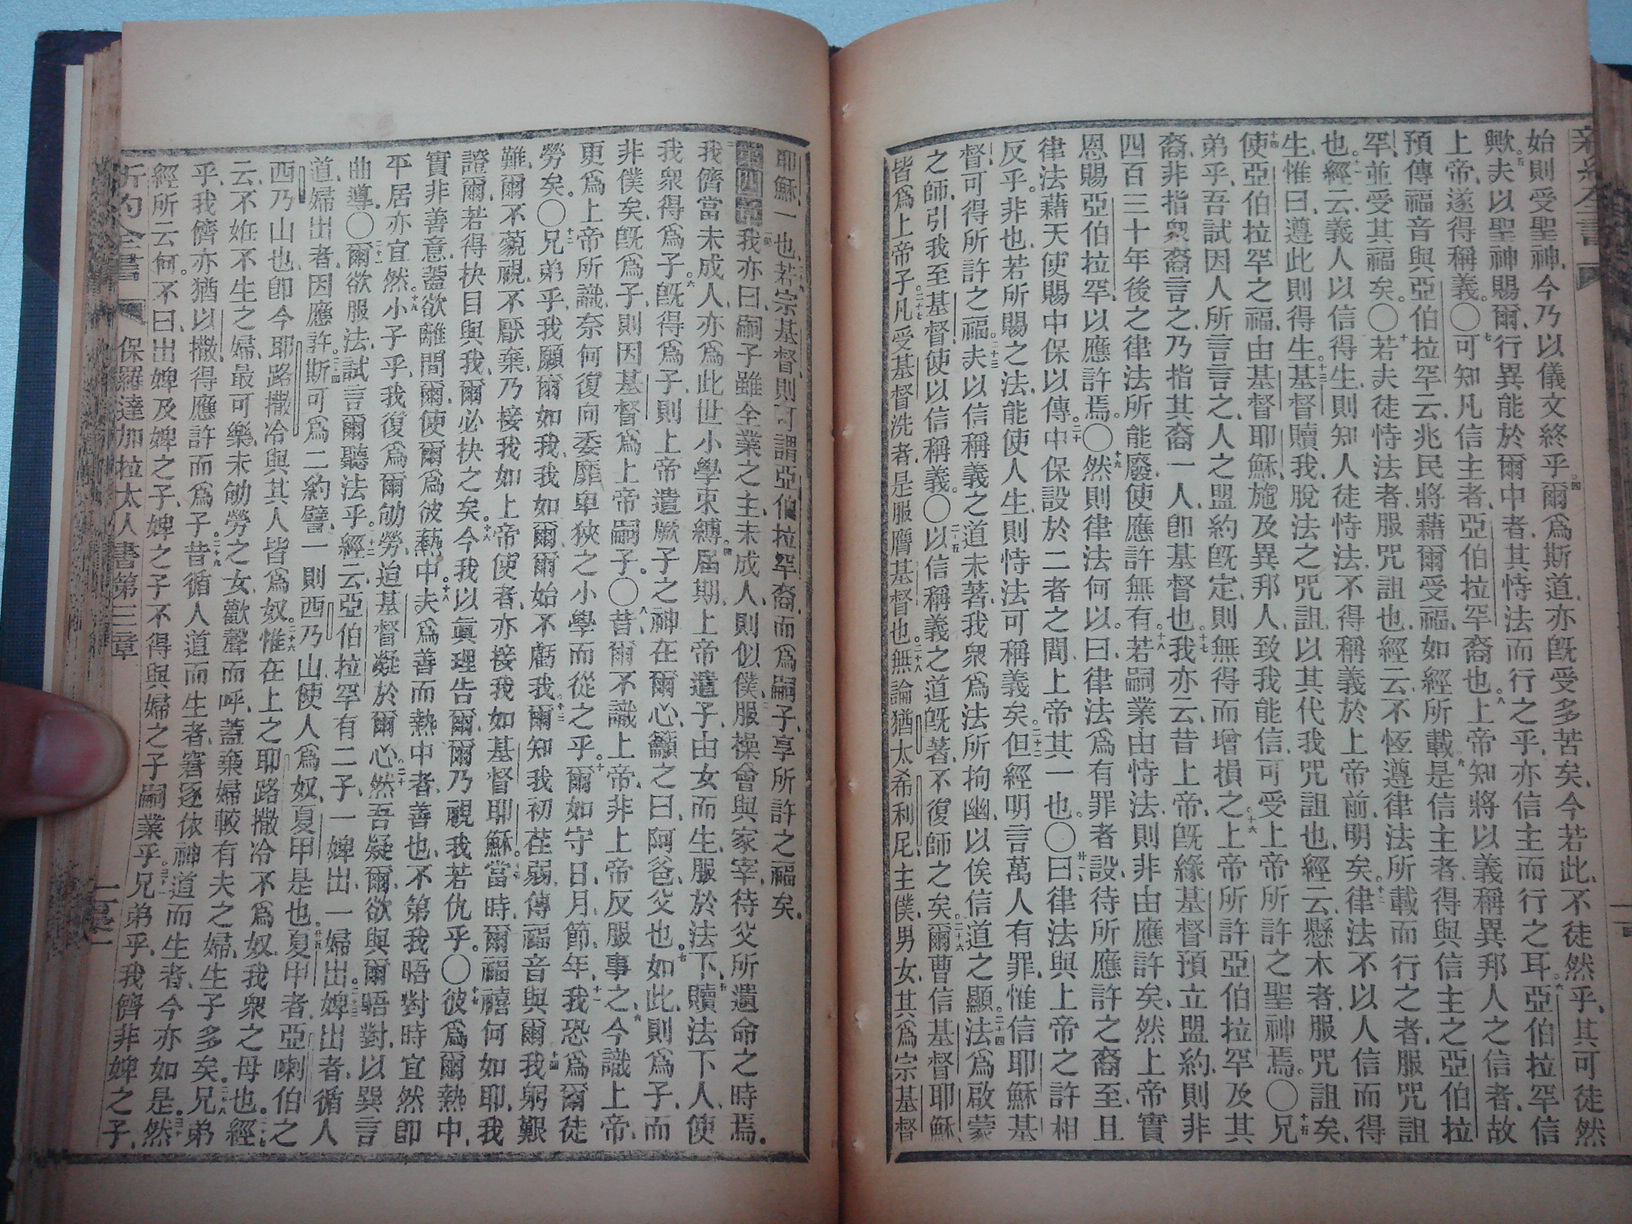 始則受聖神、今乃以儀文終乎、四爾爲斯道、亦旣受多苦矣、今若此、不徒然乎、其可徒然
歟、五夫以聖神賜爾、行異能於爾中者、其恃法而行之乎、亦信主而行之耳、六亞伯拉罕信
上帝、遂得稱義、〇七可知凡信主者、亞伯拉罕裔也、八上帝知將以義稱異邦人之信者、故
預傳福音與亞伯拉罕云、兆民將藉爾受福、如經所載、九是信主者、得與信主之亞伯拉
罕、並受其福矣、〇十若夫徒恃法者、服咒詛也、經云、不恆遵律法所載而行之者、服咒詛
也、經云、義人以信得生、則知人徒恃法、不得稱義於上帝前明矣、十二律法不以人信而得
生、惟曰、遵此則得生、十三基督贖我、脫法之咒詛、以其代我咒詛也、經云、懸木者、服咒詛矣、
十四使亞伯拉罕之福、由基督耶穌、施及異邦人、致我能信、可受上帝所許之聖神焉、〇十五兄
弟乎、吾試因人所言言之、人之盟約旣定、則無得而增損之、十六上帝所許亞伯拉罕及其
裔、非指衆裔言之、乃指其裔一人、卽基督也、十七我亦云、昔上帝旣緣基督預立盟約、則非
四百三十年後之律法所能廢、使應許無有、十八若嗣業由恃法、則非由應許矣、然上帝實
恩賜亞伯拉罕、以應許焉、〇十九然則律法何以、曰、律法爲有罪者設、待所應許之裔至、且
律法藉天使、賜中保以傳、二十中保設於二者之間、上帝其一也、〇廿一曰、律法與上帝之許相
反乎、非也、若所賜之法、能使人生、則恃法可稱義矣、二十二但經明言萬人有罪、惟信耶穌基
督、可得所許之福、二十三夫以信稱義之道未著、我衆爲法所拘幽、以俟信道之顯、二十四法爲啟蒙
之師、引我至基督、使以信稱義、〇二十五以信稱義之道旣著、不復師之矣、二十六爾曹信基督耶穌、
皆爲上帝子、二十七凡受基督洗者、是服膺基督也、二十八無論猶太希利尼、主僕、男女、其爲宗基督
耶穌、一也、二十九若宗基督、則可謂亞伯拉罕裔、而爲嗣子、享所許之福矣、
第四章 一我亦曰、嗣子雖全業之主、未成人、則似僕、二服操會與家宰、待父所遺命之時焉、
三我儕當未成人、亦爲此世小學束縛、四屆期、上帝遣子、由女而生、服於法下、五贖法下人、使
我衆得爲子、六旣得爲子、則上帝遣厥子之神在爾心、籲之曰、阿爸父也、七如此、則爲子、而
非僕矣、旣爲子、則因基督爲上帝嗣子、〇八昔爾不識上帝、非上帝反服事之、九今識上帝、
更爲上帝所識、奈何復向委靡卑狹之小學而從之乎、十爾如守日月節年、十一我恐爲爾徒
勞矣、〇十二兄弟乎、我願爾如我、我如爾、爾始不虧我、十三爾知我初荏弱、傳福音與爾、十四我躬艱
難、爾不藐視、不厭棄、乃接我如上帝使者、亦接我如基督耶穌、十五當時、爾福禧何如耶、我
證爾、若得抉目與我、爾必抉之矣、十六今我以眞理告爾、爾乃視我若仇乎、〇十七彼爲爾熱中、
實非善意、蓋欲離間爾、使爾爲彼熱中、十八夫爲善而熱中者、善也、不第我晤對時宜然、卽
平居亦宜然、十九小子乎、我復爲爾劬勞、迨基督凝於爾心、二十然吾疑爾、欲與爾晤對、以巽言
曲導、〇二十一爾欲服法、試言爾聽法乎、二十二經云、亞伯拉罕有二子、一婢出、一婦出、二十三婢出者、循人
道、婦出者、因應許、二十四斯可爲二約譬、一則西乃山、使人爲奴、夏甲是也、廿五夏甲者、亞喇伯之
西乃山也、卽今耶路撒冷、與其人皆爲奴、二十六惟在上之耶路撒冷不爲奴、我衆之母也、二十七經
云、不姙不生之婦、最可樂、未劬勞之女、歡聲而呼、蓋棄婦較有夫之婦、生子多矣、二十八兄弟
乎、我儕亦猶以撒、得應許而爲子、二十九昔循人道而生者、窘逐依神道而生者、今亦如是、三十然
經所云何、不曰、出婢及婢之子、婢之子不得與婦之子嗣業乎、三十一兄弟乎、我儕非婢之子、
新約全書 保羅達加拉太人書第三章